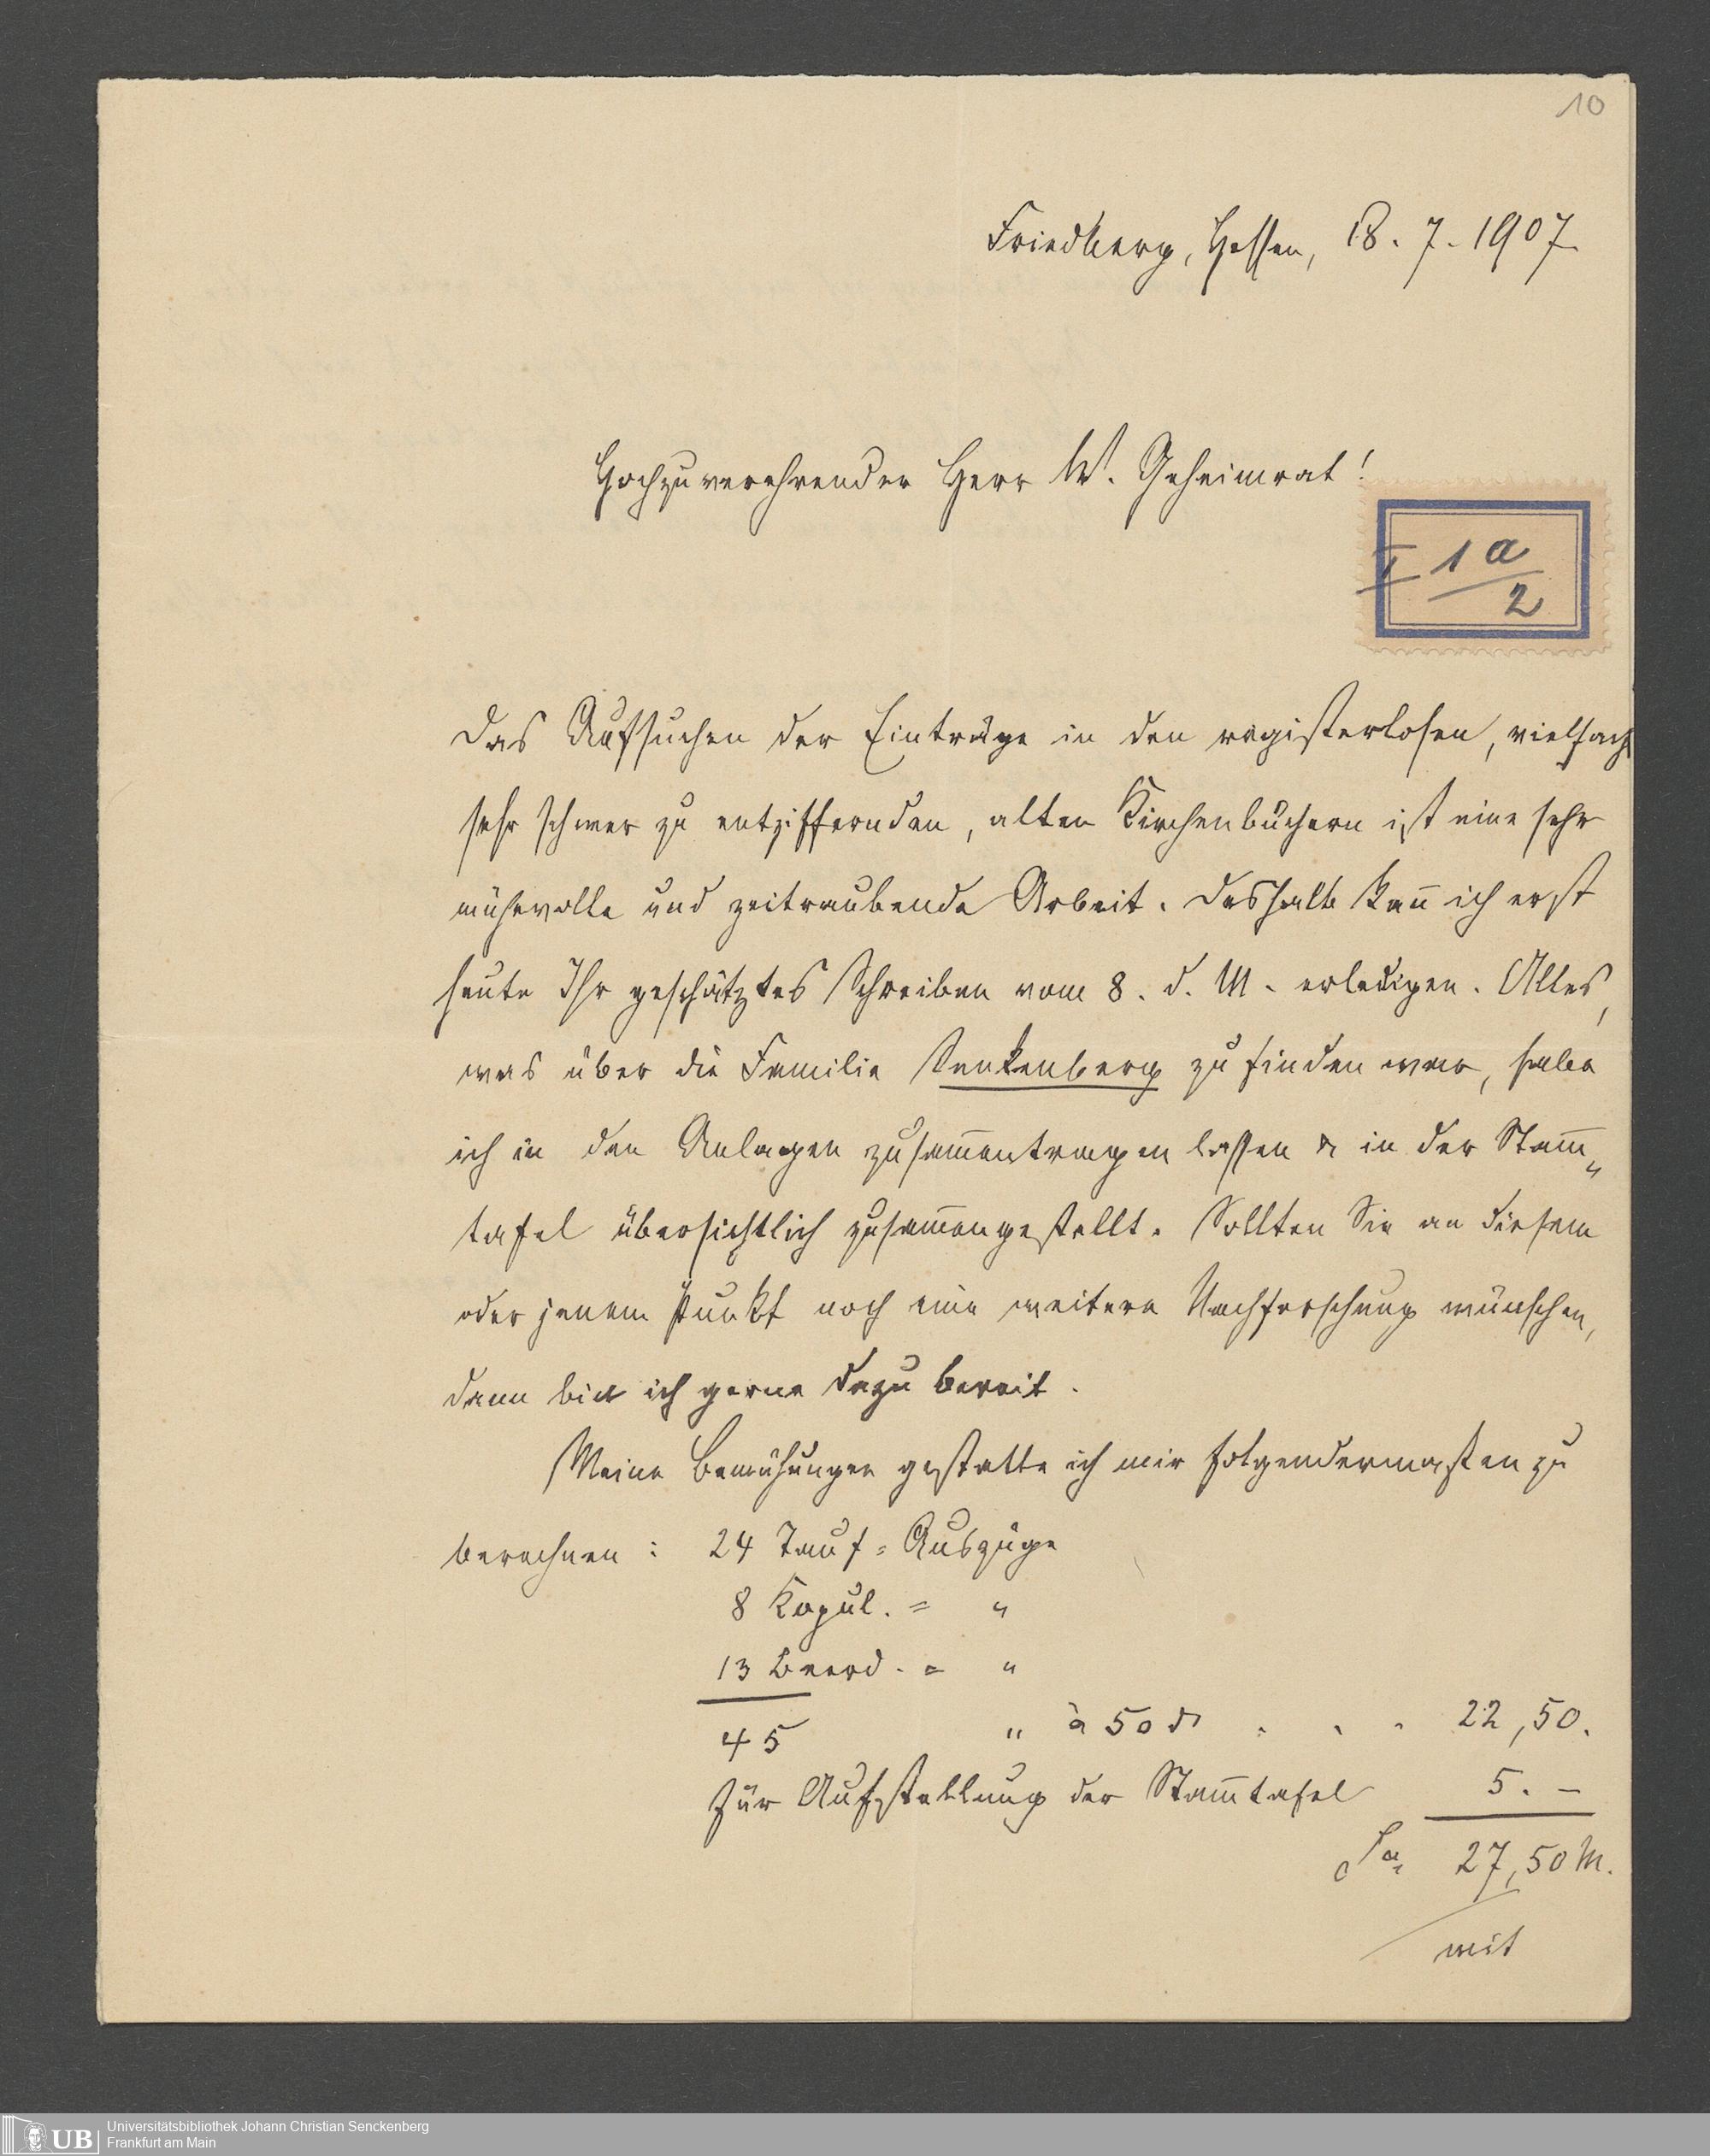 10
Friedberg, Hessen, 18. 7. 1907.
Hochzuverehrender Herr W. Geheimrat!
I 1 a
2
Das Aufsuchen der Einträge in den registerlosen, vielfach
sehr schwer zu entziffernden, alten Kirchenbüchern ist eine sehr
mühevolle und zeitraubende Arbeit. Deshalb kan̄ ich erst
heute Ihr geschätztes Schreiben vom 8. d. M. erledigen. Alles,
was über die Familie Senkenberg zu finden war, habe
ich in den Anlagen zusam̄entragen lassen & in der Stam̄-
tafel übersichtlich zusam̄engestellt. Sollten Sie an diesem
oder jenem Punkt noch eine weitere Nachforschung wünschen,
dann bin ich gerne dazu bereit.
Meine Bemühungen gestatte ich mir folgendermasten zu
berechnen: 24 Tauf=Auszüge
8 Kopul. = "
13 Beerd. = "
45 " à 50 ₰ . . . 22,50.
Für Aufstellung der Stam̄tafel 5. –
Sa. 27,50 M.
mit
UB
Universitätsbibliothek Johann Christian Senckenberg
Frankfurt am Main